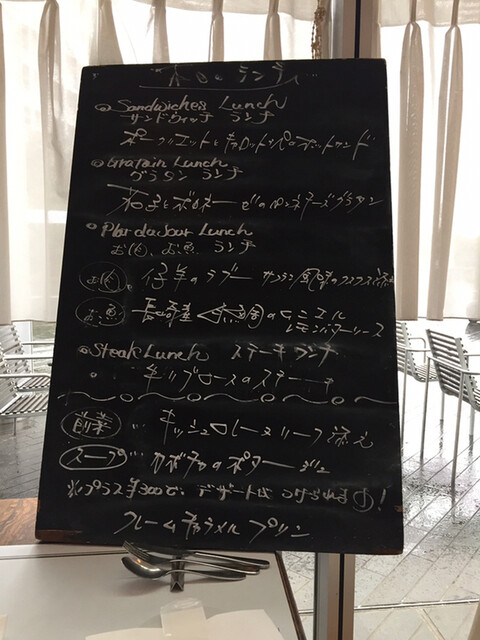 本日のランチ
Sandwiches Lunch
サンドウィッチ ランチ
ポークリエットとキャロットラペのホットサンド
Gratain Lunch
グラタン ランチ
茄子とボロネーゼのペンネチーズグラタン
Plat du Jour Lunch
お肉、お魚 ランチ
お肉 仔羊のラグー サフラン風味のクスクス添え
お魚 長崎産 のムニエル
レモンバターソース
Steak Lunch ステーキ ランチ
牛リブロースのステーキ
前菜 … キッシュロレーヌリーフ添え
スープ … カボチャのポタージュ
※プラス¥300で、デザートは つけられます!
クレームキャラメル プリン